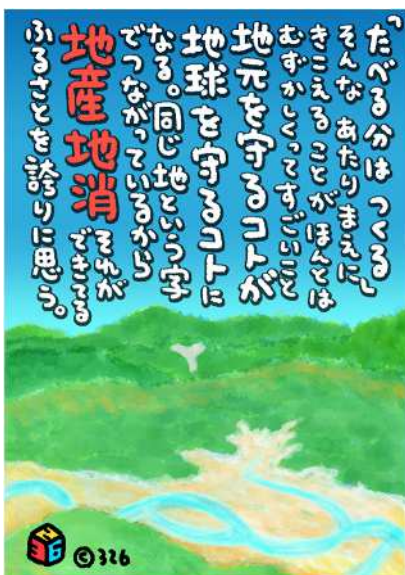 「たべる分は つくる」
そんな あたりまえに
きこえることがほんとは
むずかしくってすごいこと
地元を守るコトが
地球を守るコトに
なる。同じ地という字
でつながっているから
地産地消 それが
できてる
ふるさとを誇りに思う。
326
©326